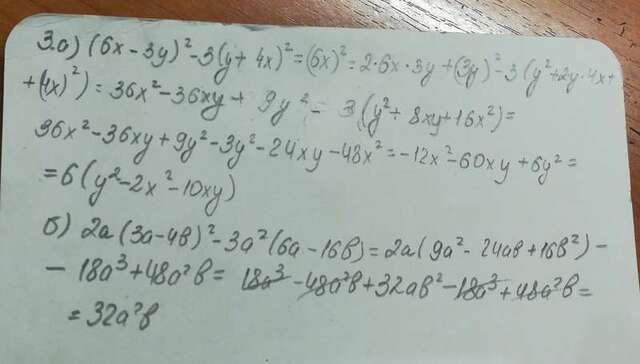 3.а) (6x - 3y)² - 3(y + 4x)² = (6x)² = 2·6x·3y + (3y)² - 3(y² + 2y·4x +
+ (4x)²) = 36x² - 36xy + 9y² - 3(y² + 8xy + 16x²) =
36x² - 36xy + 9y² - 3y² - 24xy - 48x² = -12x² - 60xy + 6y² =
= 6(y² - 2x² - 10xy)
б) 2a(3a - 4в)² - 3a²(6a - 16в) = 2a(9a² - 24aв + 16в²) -
- 18a³ + 48a²в = 18a³ - 48a²в + 32aв² - 18a³ + 48a²в =
= 32a²в